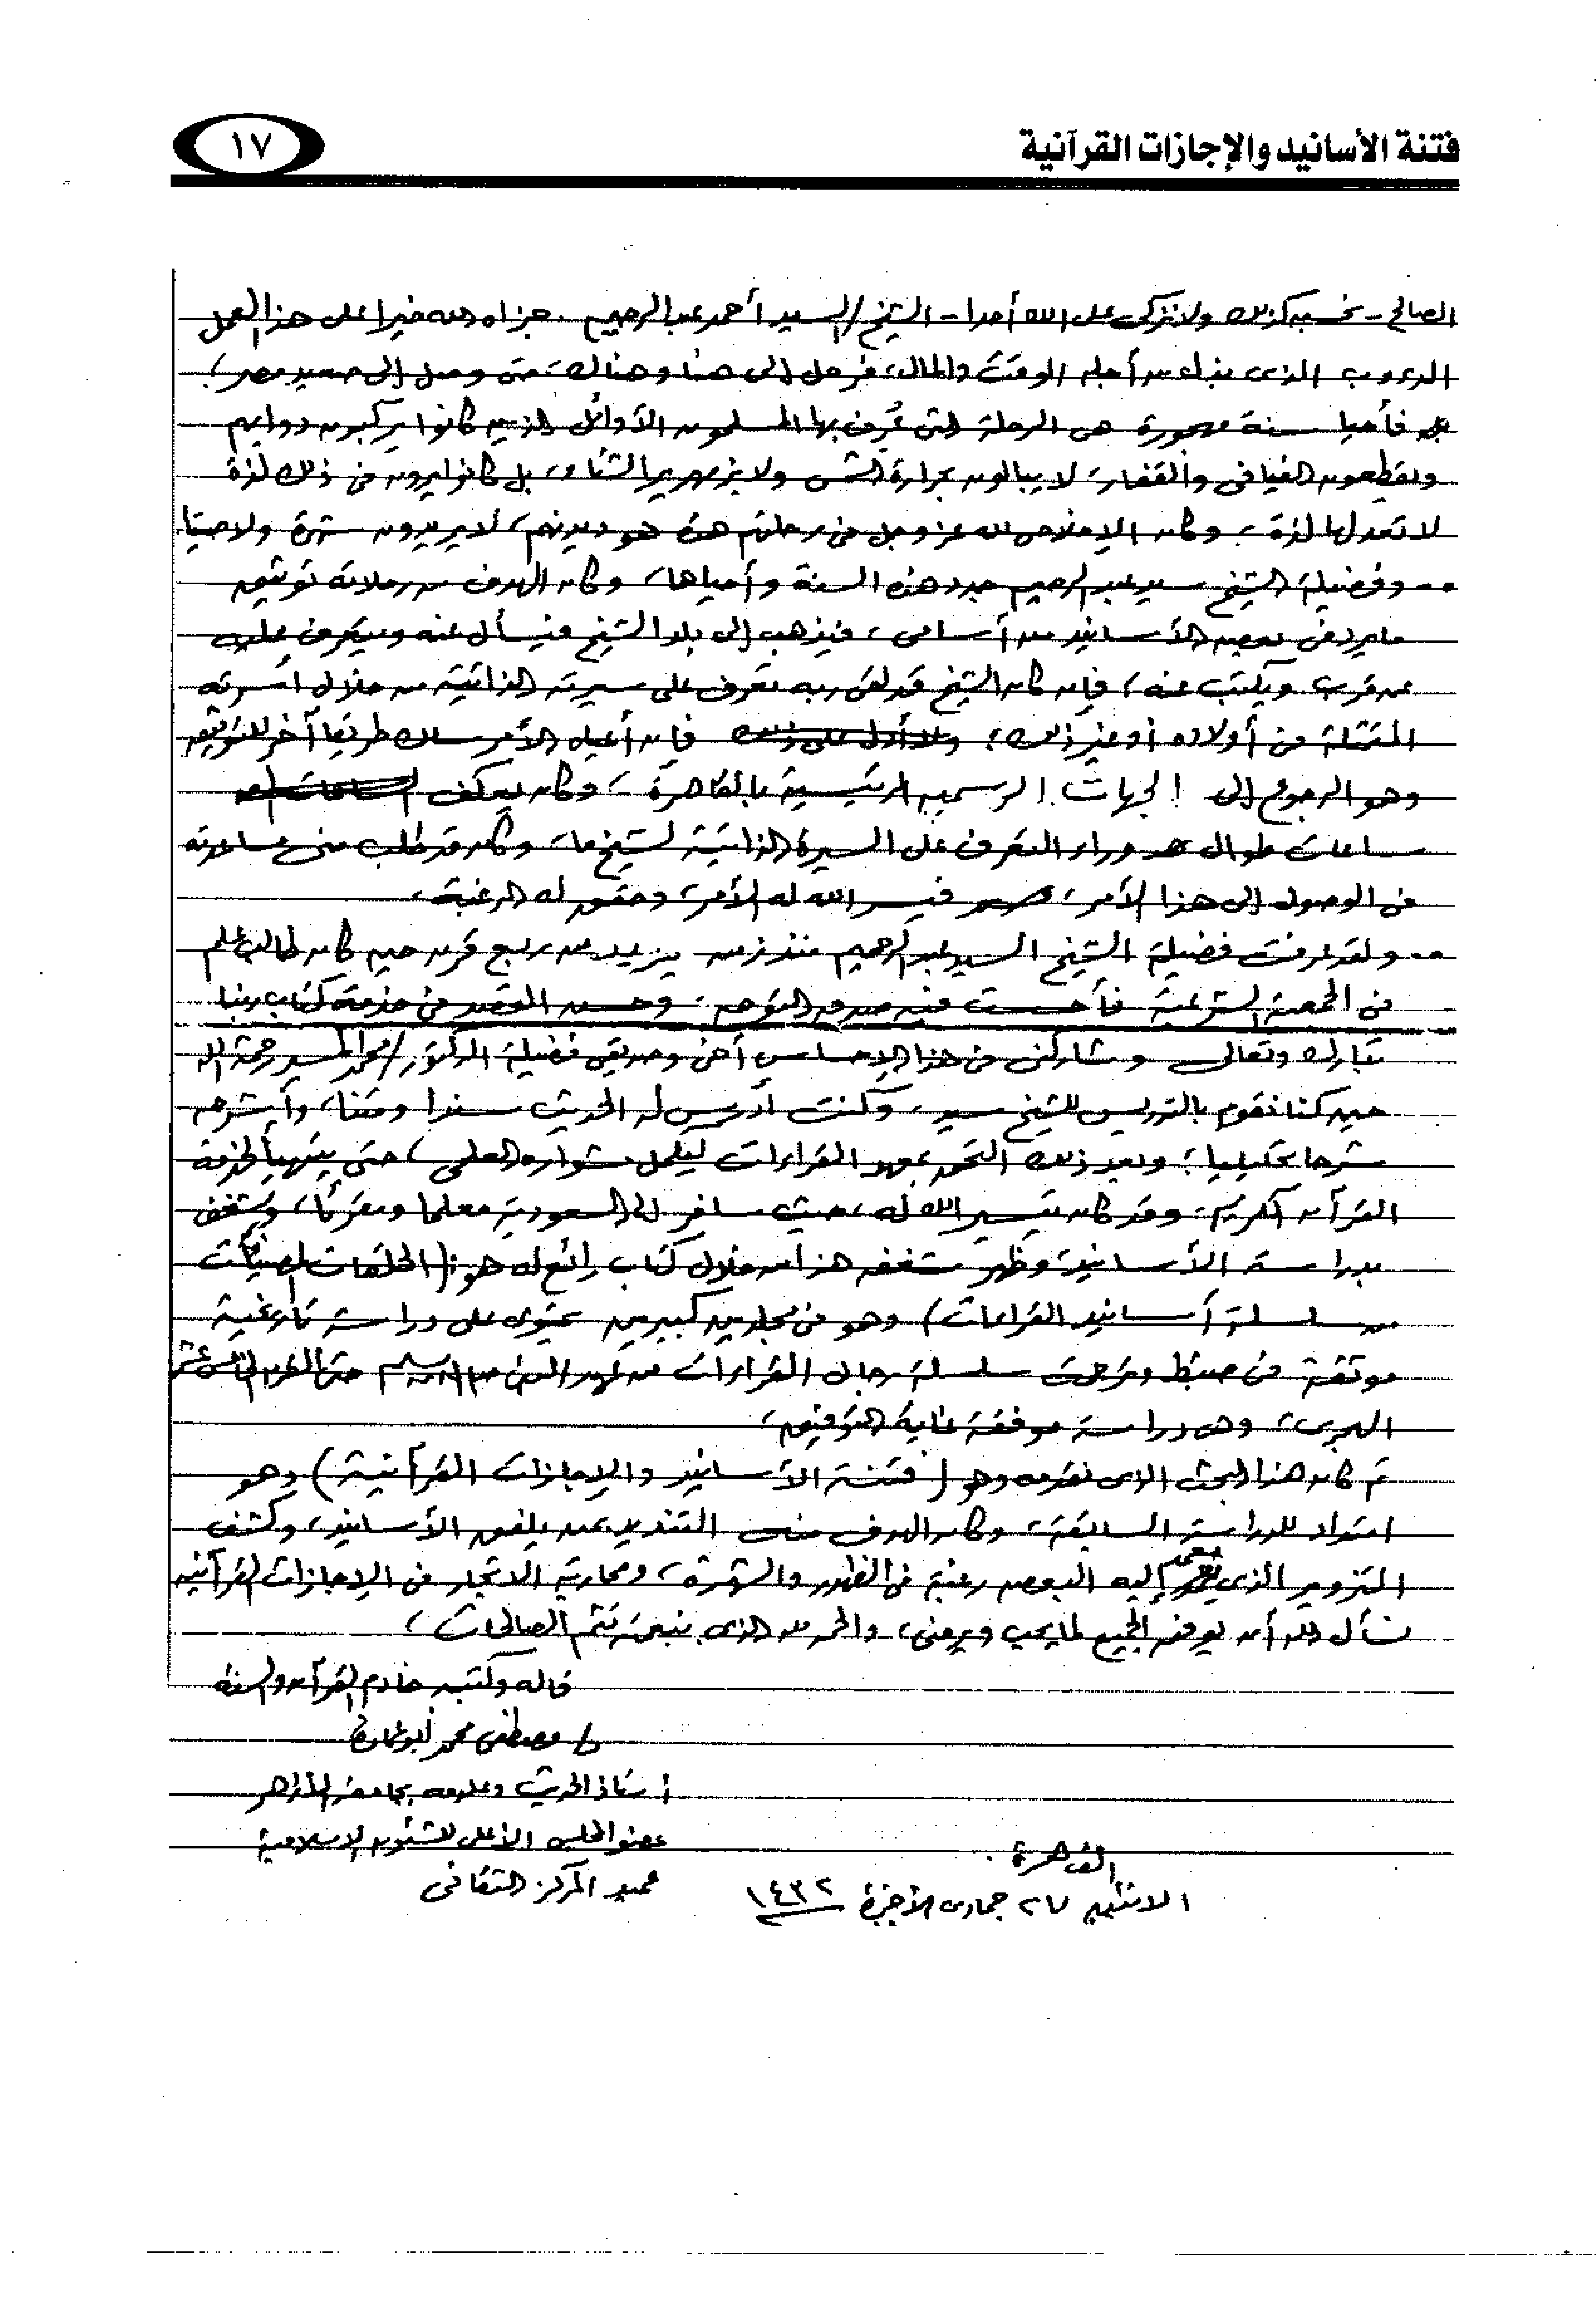 فتنة الأسانيد والإجازات القرآنية
١٧
الصالح - نحسبه كذلك ولا نزكى على الله أحدا - الشيخ / السيد أحمد عبد الرحيم . جزاه الله خيرا على هذا العمل
الدءوب الذى بذل من أجله الوقت والمال، فرحل إلى هنا وهناك، حتى وصل إلى صعيد مصر،
فأحيا سنة مهجورة هى الرحلة التى عُرف بها المسلمون الأوائل الذين كانوا يركبون دوابهم
ويقطعون الفيافى والقفار، لا يبالون بحرارة الشمس ولا بزمهرير الشتاء، بل كانوا يرون فى ذلك لذة
لا تعدلها لذة، وكان الإخلاص لله عز وجل فى رحلتهم هذه هو ديدنهم، لا يريدون شهرة ولا صيتا
.. وفضيلة الشيخ سيد عبد الرحيم جدد هذه السنة وأحياها، وكان الهدف من رحلاته توثيق
ما يرد فى بعض الأسانيد من أسامى، فيذهب إلى بلد الشيخ فيسأل عنه ويتعرف عليه
عن قرب ويكتب عنه، فإن كان الشيخ قد لقى ربه تعرف على سيرته الذاتية من خلال أسرته
المتمثلة فى أولاده أو غير ذلك، ولا أدل على ذلك فإن أعياه الأمر سلك طريقا آخر للتوثيق
وهو الرجوع إلى الجهات الرسمية الرئيسية بالقاهرة، وكان يعكف
ساعات طوال وراء التعرف على السيرة الذاتية لشيخ ما، وكان قد طلب منى مساعدته
فى الوصول إلى هذا الأمر، فيسر الله له الأمر، وحقق له الرغبة،
.. ولقد عرفت فضيلة الشيخ السيد عبد الرحيم منذ زمن يزيد عن ربع قرن حين كان طالب علم
فى الجمعية الشرعية فأحسست فيه صدق التوجه، وحسن القصد فى خدمة كتاب ربنا
تبارك وتعالى وشاركنى فى هذا الإحساس أخى وصديقى فضيلة الدكتور / محمد المسير رحمة الله
حين كنا نقوم بالتدريس للشيخ سيد، وكنت أدرس له الحديث سندا ومتنا، وأشرحه
شرحا تحليليا، وبعد ذلك التحق بمعهد القراءات ليكمل مشواره العلمى، حتى يتهيأ لخدمة
القرآن الكريم، وقد كان تيسير الله له، حيث سافر إلى السعودية معلما ومقرئا، وشغف
بدراسة الأسانيد وظهر شغفه هذا من خلال كتاب رائع له هو : (الحلقات المضيئات
من سلسلة أسانيد القراءات) وهو فى مجلدين كبيرين يحتوى على دراسة تأريخية
موثقة فى ضبط وترجمة سلسلة رجال القراءات من عهد النبى صلى الله عليه وسلم حتى القرن الخامس عشر
الهجرى، وهى دراسة موفقة غاية التوفيق،
ثم كان هذا البحث الذى نقدمه وهو (فتنة الأسانيد والإجازات القرآنية) وهو
امتداد للدراسة السابقة، وكان الهدف منه التنديد بمن يلفق الأسانيد، وكشف
التزوير الذى يعمد إليه البعض رغبة فى الظهور والشهرة، ومحاربة الاتجار فى الإجازات القرآنية
نسأل الله أن يوفق الجميع لما يحب ويرضى، والحمد لله الذى بنعمته تتم الصالحات،
قاله وكتبه خادم القرآن والسنة
د/ مصطفى محمد أبو عمارة
أستاذ الحديث وعلومه بجامعة الأزهر
عضو المجلس الأعلى للشئون الإسلامية
عميد المركز الثقافى
القاهرة
الاثنين ٢٧ جمادى الآخرة ١٤٣٢